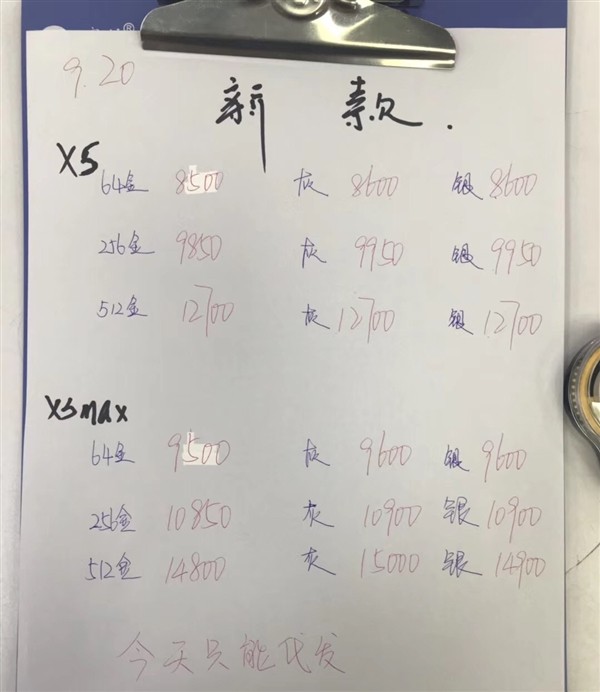 9.20
新款.
XS
64金 8500 灰 8600 银 8600
256金 9850 灰 9950 银 9950
512金 12700 灰 12700 银 12700
XSmax
64金 9500 灰 9600 银 9600
256金 10850 灰 10900 银 10900
512金 14800 灰 15000 银 14900
今天只能代发